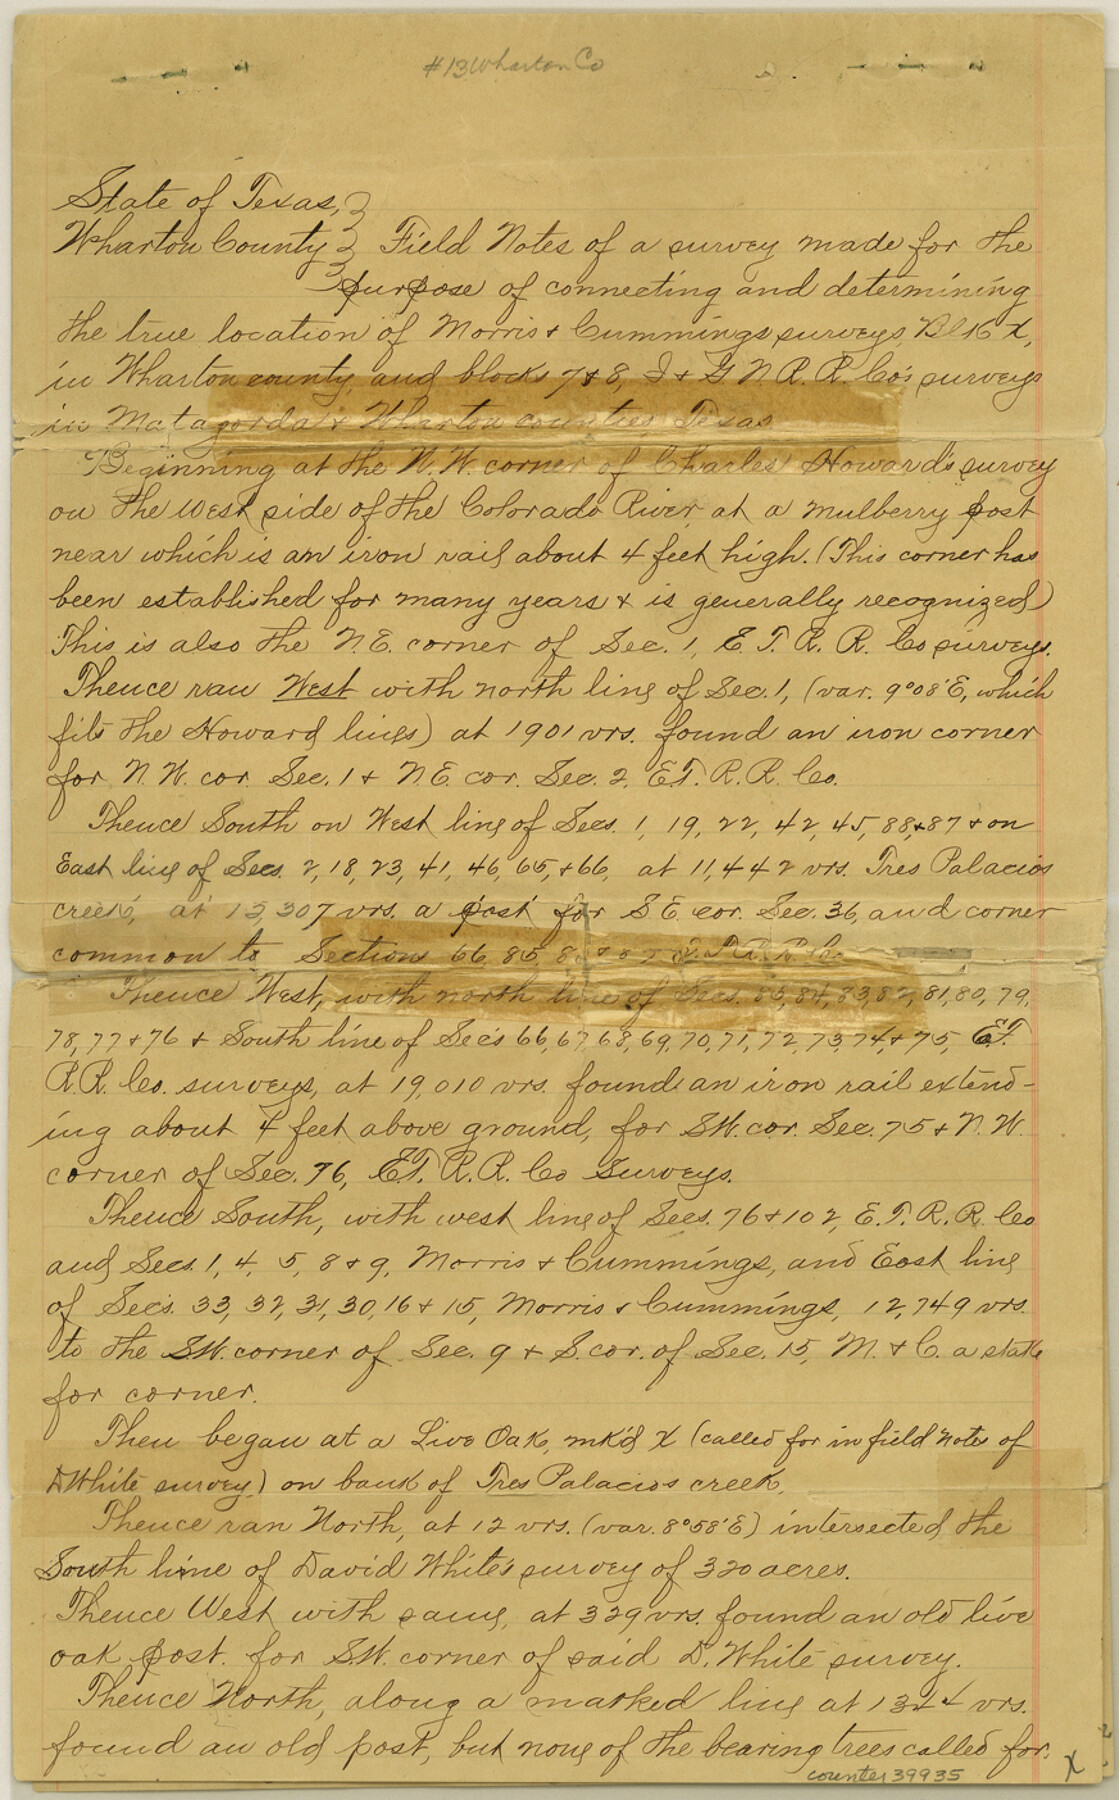 #13 Wharton Co
State of Texas,
Wharton County Field Notes of a survey made for the
purpose of connecting and determining
the true location of Morris & Cummings surveys, Blk X,
in Wharton county, and blocks 7 & 8, I & G N R. R. Co's surveys
in Matagorda & Wharton counties, Texas
Beginning at the N. W. corner of Charles Howard's survey
on the west side of the Colorado River, at a mulberry post
near which is an iron rail about 4 feet high. (This corner has
been established for many years & is generally recognized)
This is also the N. E. corner of Sec. 1, E. T. R. R. Co surveys.
Thence ran West with north line of Sec. 1, (var. 9°08'E, which
fits the Howard lines) at 1901 vrs. found an iron corner
for N. W. cor. Sec. 1 & N. E. cor. Sec. 2, E. T. R. R. Co.
Thence South on West line of Secs. 1, 19, 22, 42, 45, 88, & 87 & on
East line of Secs. 2, 18, 23, 41, 46, 65, & 66, at 11,442 vrs. Tres Palacios
creek, at 13,307 vrs. a post for S E. cor. Sec. 36, and corner
common to Sections 66, 85, E. T. R. R. Co.
Thence West, with north line of Secs. 85, 84, 83, 82, 81, 80, 79,
78, 77 & 76 & South line of Sec's 66, 67, 68, 69, 70, 71, 72, 73, 74, & 75, E. T.
R. R. Co. surveys, at 19,010 vrs. found an iron rail extend-
ing about 4 feet above ground, for S. W. cor. Sec. 75 & N. W.
corner of Sec. 76, E. T. R. R. Co Surveys.
Thence South, with west line of Secs. 76 & 102, E. T. R. R. Co
and Secs. 1, 4, 5, 8 & 9, Morris & Cummings, and East line
of Sec's. 33, 32, 31, 30, 16 & 15, Morris & Cummings, 12,749 vrs.
to the S. W. corner of Sec. 9 & S. cor. of Sec. 15, M. & C. a stake
for corner.
Then began at a Live Oak, mk'd X (called for in field notes of
D White survey) on bank of Tres Palacios creek.
Thence ran North, at 12 vrs. (var. 8°58'E) intersected the
South line of David White's survey of 320 acres.
Thence West with same, at 329 vrs. found an old live
oak post. for S. W. corner of said D. White survey.
Thence North, along a marked line at 1344 vrs.
found an old post, but none of the bearing trees called for.
counter 39935
X